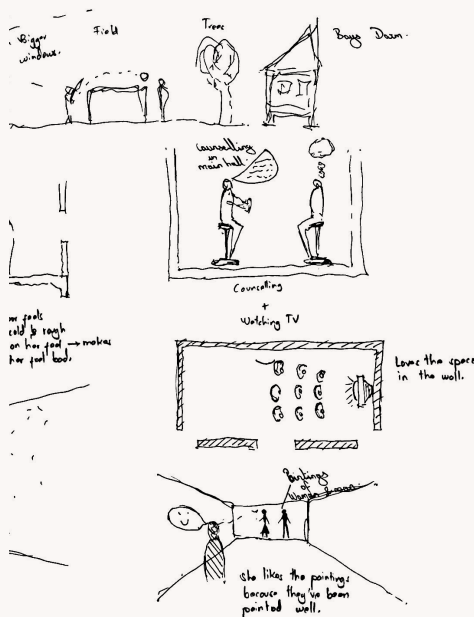 Bigger
windows.
Field
Trees
Boys Dorm.
Counselling
in
main hall.
Counselling
+
Watching TV
feels
cold & rough
on her feet → makes
her feel bad.
Loves the space
in the wall.
Paintings
of
Woman &
She likes the paintings
because they've been
painted well.